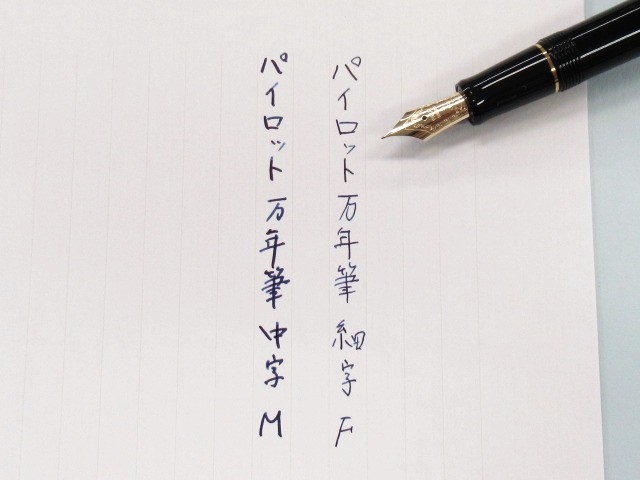 パイロット万年筆 細字 F
パイロット万年筆 中字 M